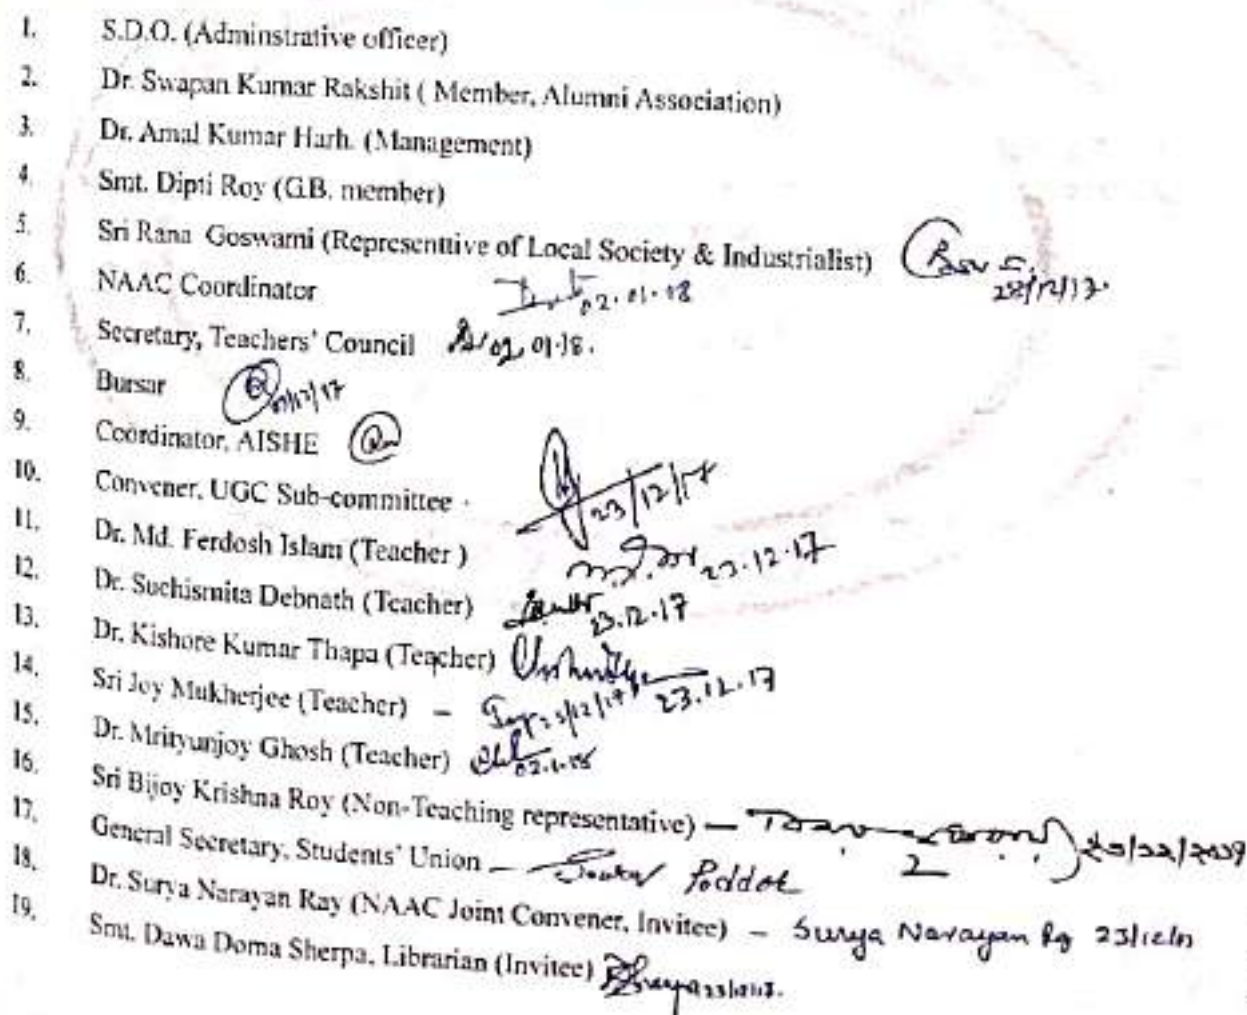 1. S.D.O. (Adminstrative officer)
2. Dr. Swapan Kumar Rakshit ( Member, Alumni Association)
3. Dr. Amal Kumar Harh. (Management)
4. Smt. Dipti Roy (G.B. member)
5. Sri Rana Goswami (Representtive of Local Society & Industrialist)
6. NAAC Coordinator 02.01.18
7. Secretary, Teachers' Council 02.01.18.
8. Bursar
9. Coordinator, AISHE
10. Convener, UGC Sub-committee 23/12/17
11. Dr. Md. Ferdosh Islam (Teacher ) 23.12.17
12. Dr. Suchismita Debnath (Teacher) 23.12.17
13. Dr. Kishore Kumar Thapa (Teacher) 23.12.17
14. Sri Joy Mukherjee (Teacher) – Joy 23/12/17
15. Dr. Mrityunjoy Ghosh (Teacher)
16. Sri Bijoy Krishna Roy (Non-Teaching representative) –
17. General Secretary, Students' Union – Poddar
18. Dr. Surya Narayan Ray (NAAC Joint Convener, Invitee) – Surya Narayan Ray 23/12/17
19. Smt. Dawa Doma Sherpa, Librarian (Invitee) 23/12/17.